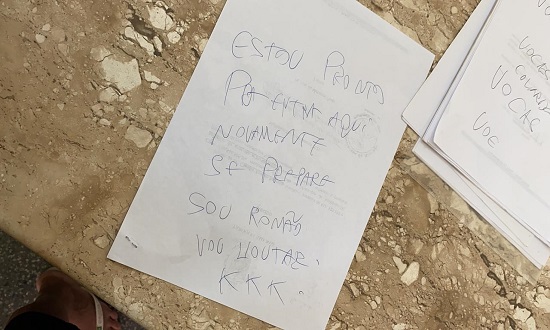 ESTOU PRONTO
PA ENTRA AQUI
NOVAMENTE
SE PREPARE
SOU ROMÃO
VOU VOUTAR.
KKK.
VOCAS
VOE